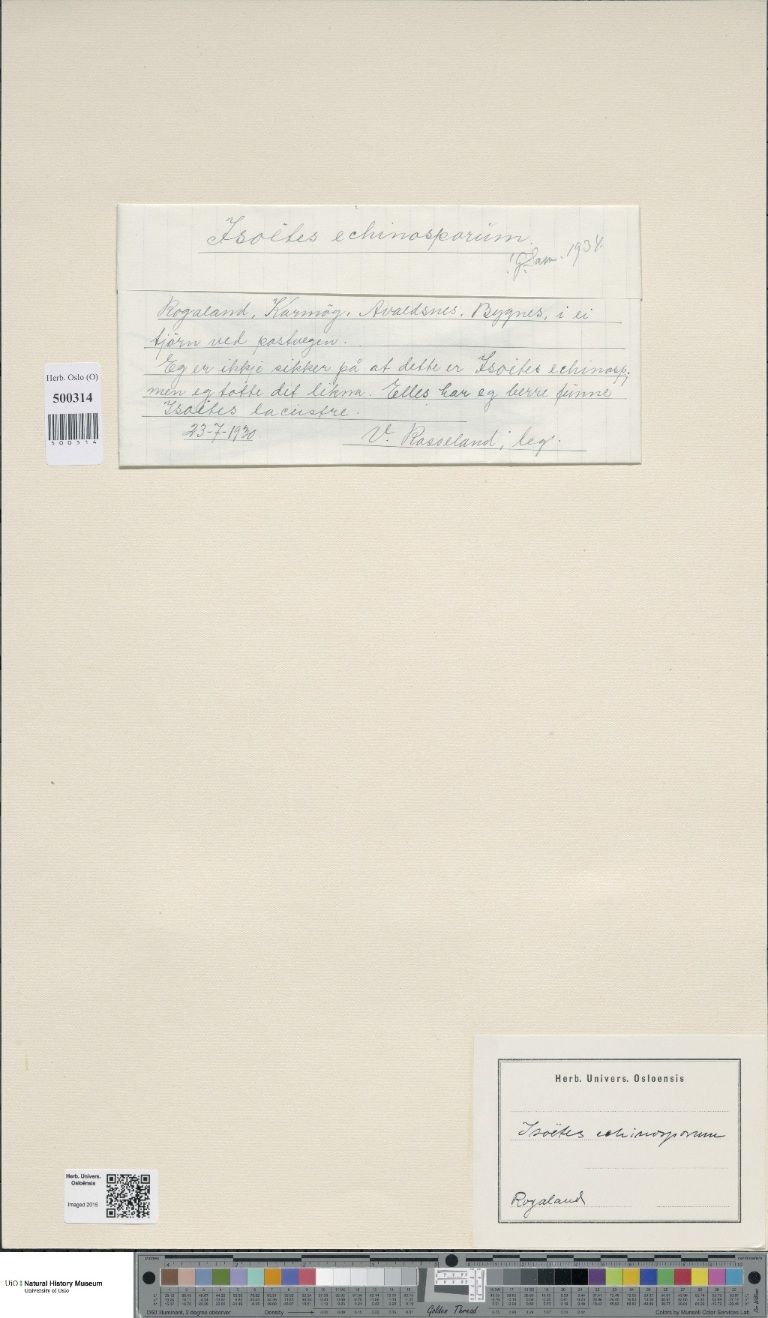 Isoëtes echinosporum
! G. Sam. 1934.
Rogaland, Karmöy, Avaldsnes, Bygnes, i ei
tjörn ved postvegen.
Eg er ikkje sikker på at dette er Isoëtes echinosp;
men eg totte det likna. Elles har eg berre funne
Isoëtes lacustre.
23-7-1930
V. Rasseland, leg.
Herb. Oslo (O)
500314
500314
Herb. Univers. Osloensis
Isoëtes echinosporum
Rogaland
Herb. Univers.
Osloënsis
Imaged 2016
UiO Natural History Museum
University of Oslo
D50 Illuminant, 2 degree observer
Density
Golden Thread
Colors by Munsell Color Services Lab